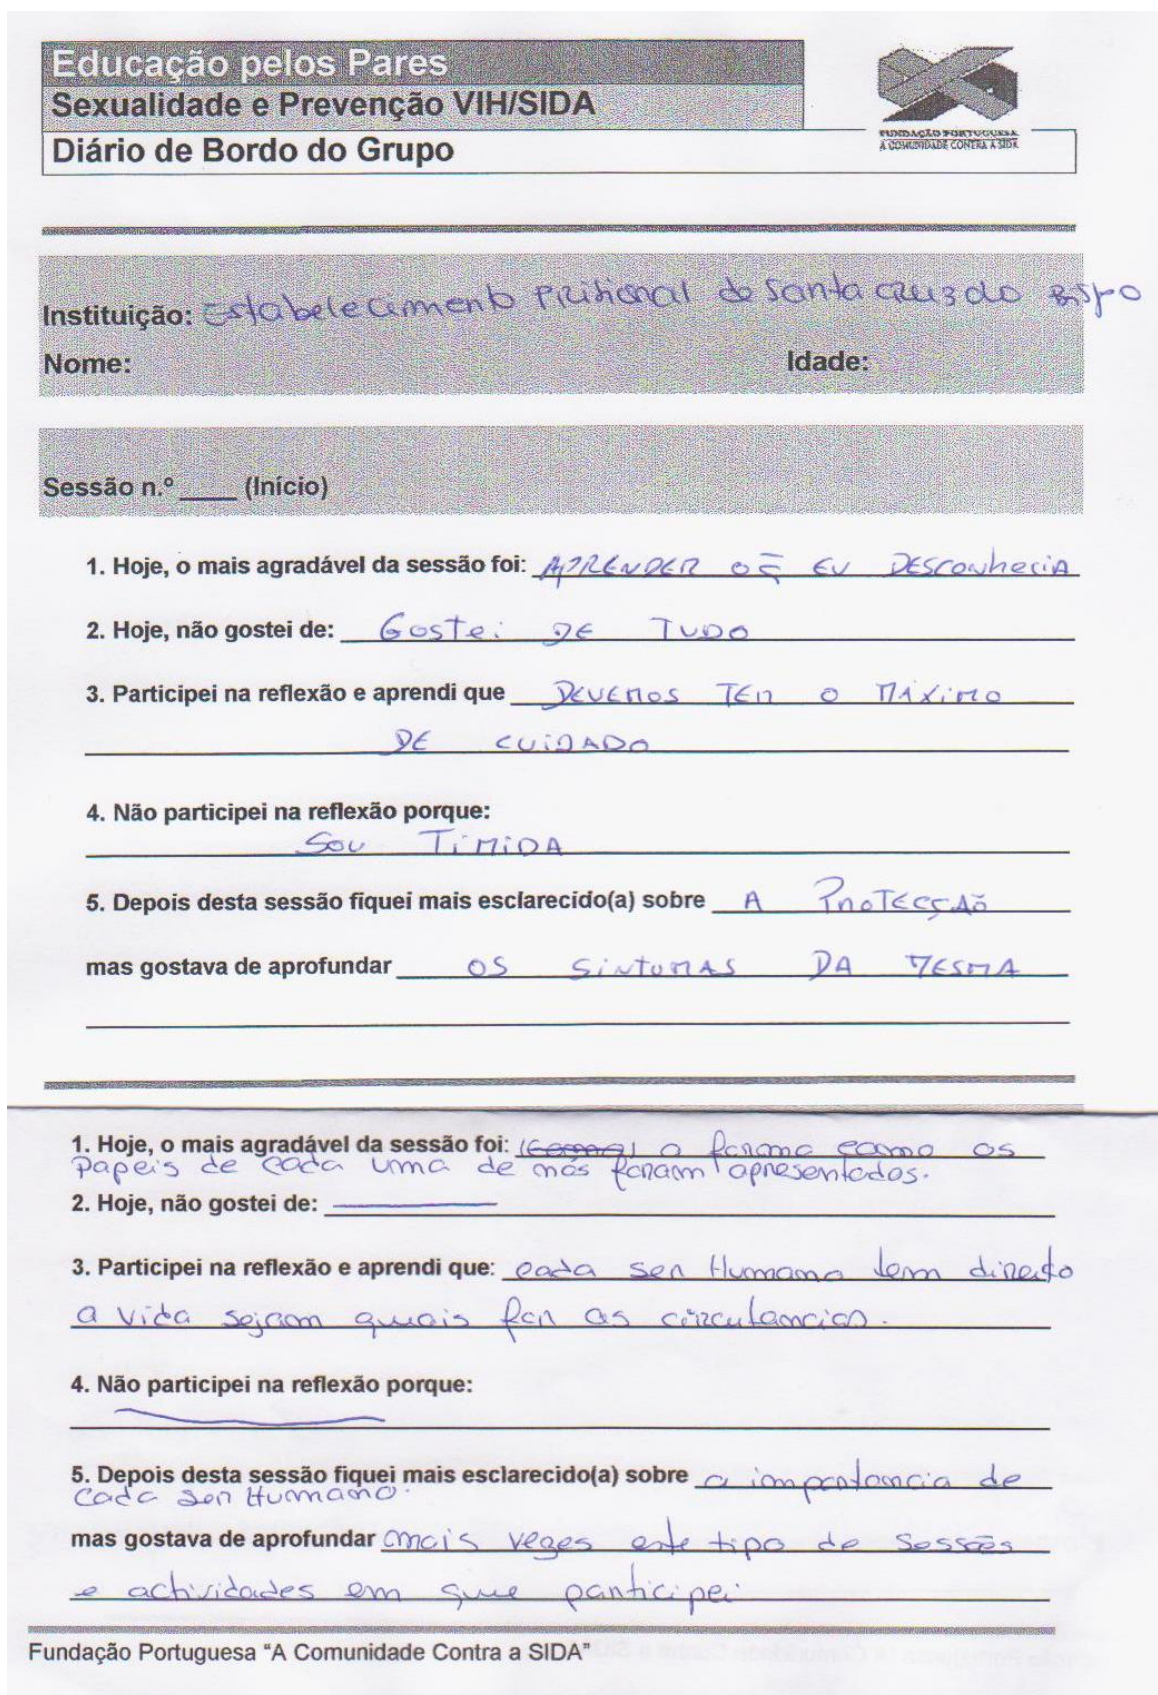 Educação pelos Pares
Sexualidade e Prevenção VIH/SIDA
Diário de Bordo do Grupo
FUNDAÇÃO PORTUGUESA
A COMUNIDADE CONTRA A SIDA
Instituição: Estabelecimento Prisional de Santa Cruz do Bispo
Nome: Idade:
Sessão n.º ____ (Início)
1. Hoje, o mais agradável da sessão foi: APRENDER O Q̄ EU DESconheciA
2. Hoje, não gostei de: Gostei DE TUDO
3. Participei na reflexão e aprendi que DEVEMOS TER O MÁXIMO
DE CUIDADO
4. Não participei na reflexão porque:
Sou TIMIDA
5. Depois desta sessão fiquei mais esclarecido(a) sobre A PROTECÇÃO
mas gostava de aprofundar OS SINTOMAS DA MESMA
1. Hoje, o mais agradável da sessão foi: a forma como os
papeis de cada uma de nós foram apresentados.
2. Hoje, não gostei de:
3. Participei na reflexão e aprendi que: cada ser Humano tem direito
a vida sejam quais for as circutancias.
4. Não participei na reflexão porque:
5. Depois desta sessão fiquei mais esclarecido(a) sobre a importancia de
cada ser Humano.
mas gostava de aprofundar mais vezes este tipo de Sessões
e actividades em que participei.
Fundação Portuguesa “A Comunidade Contra a SIDA”